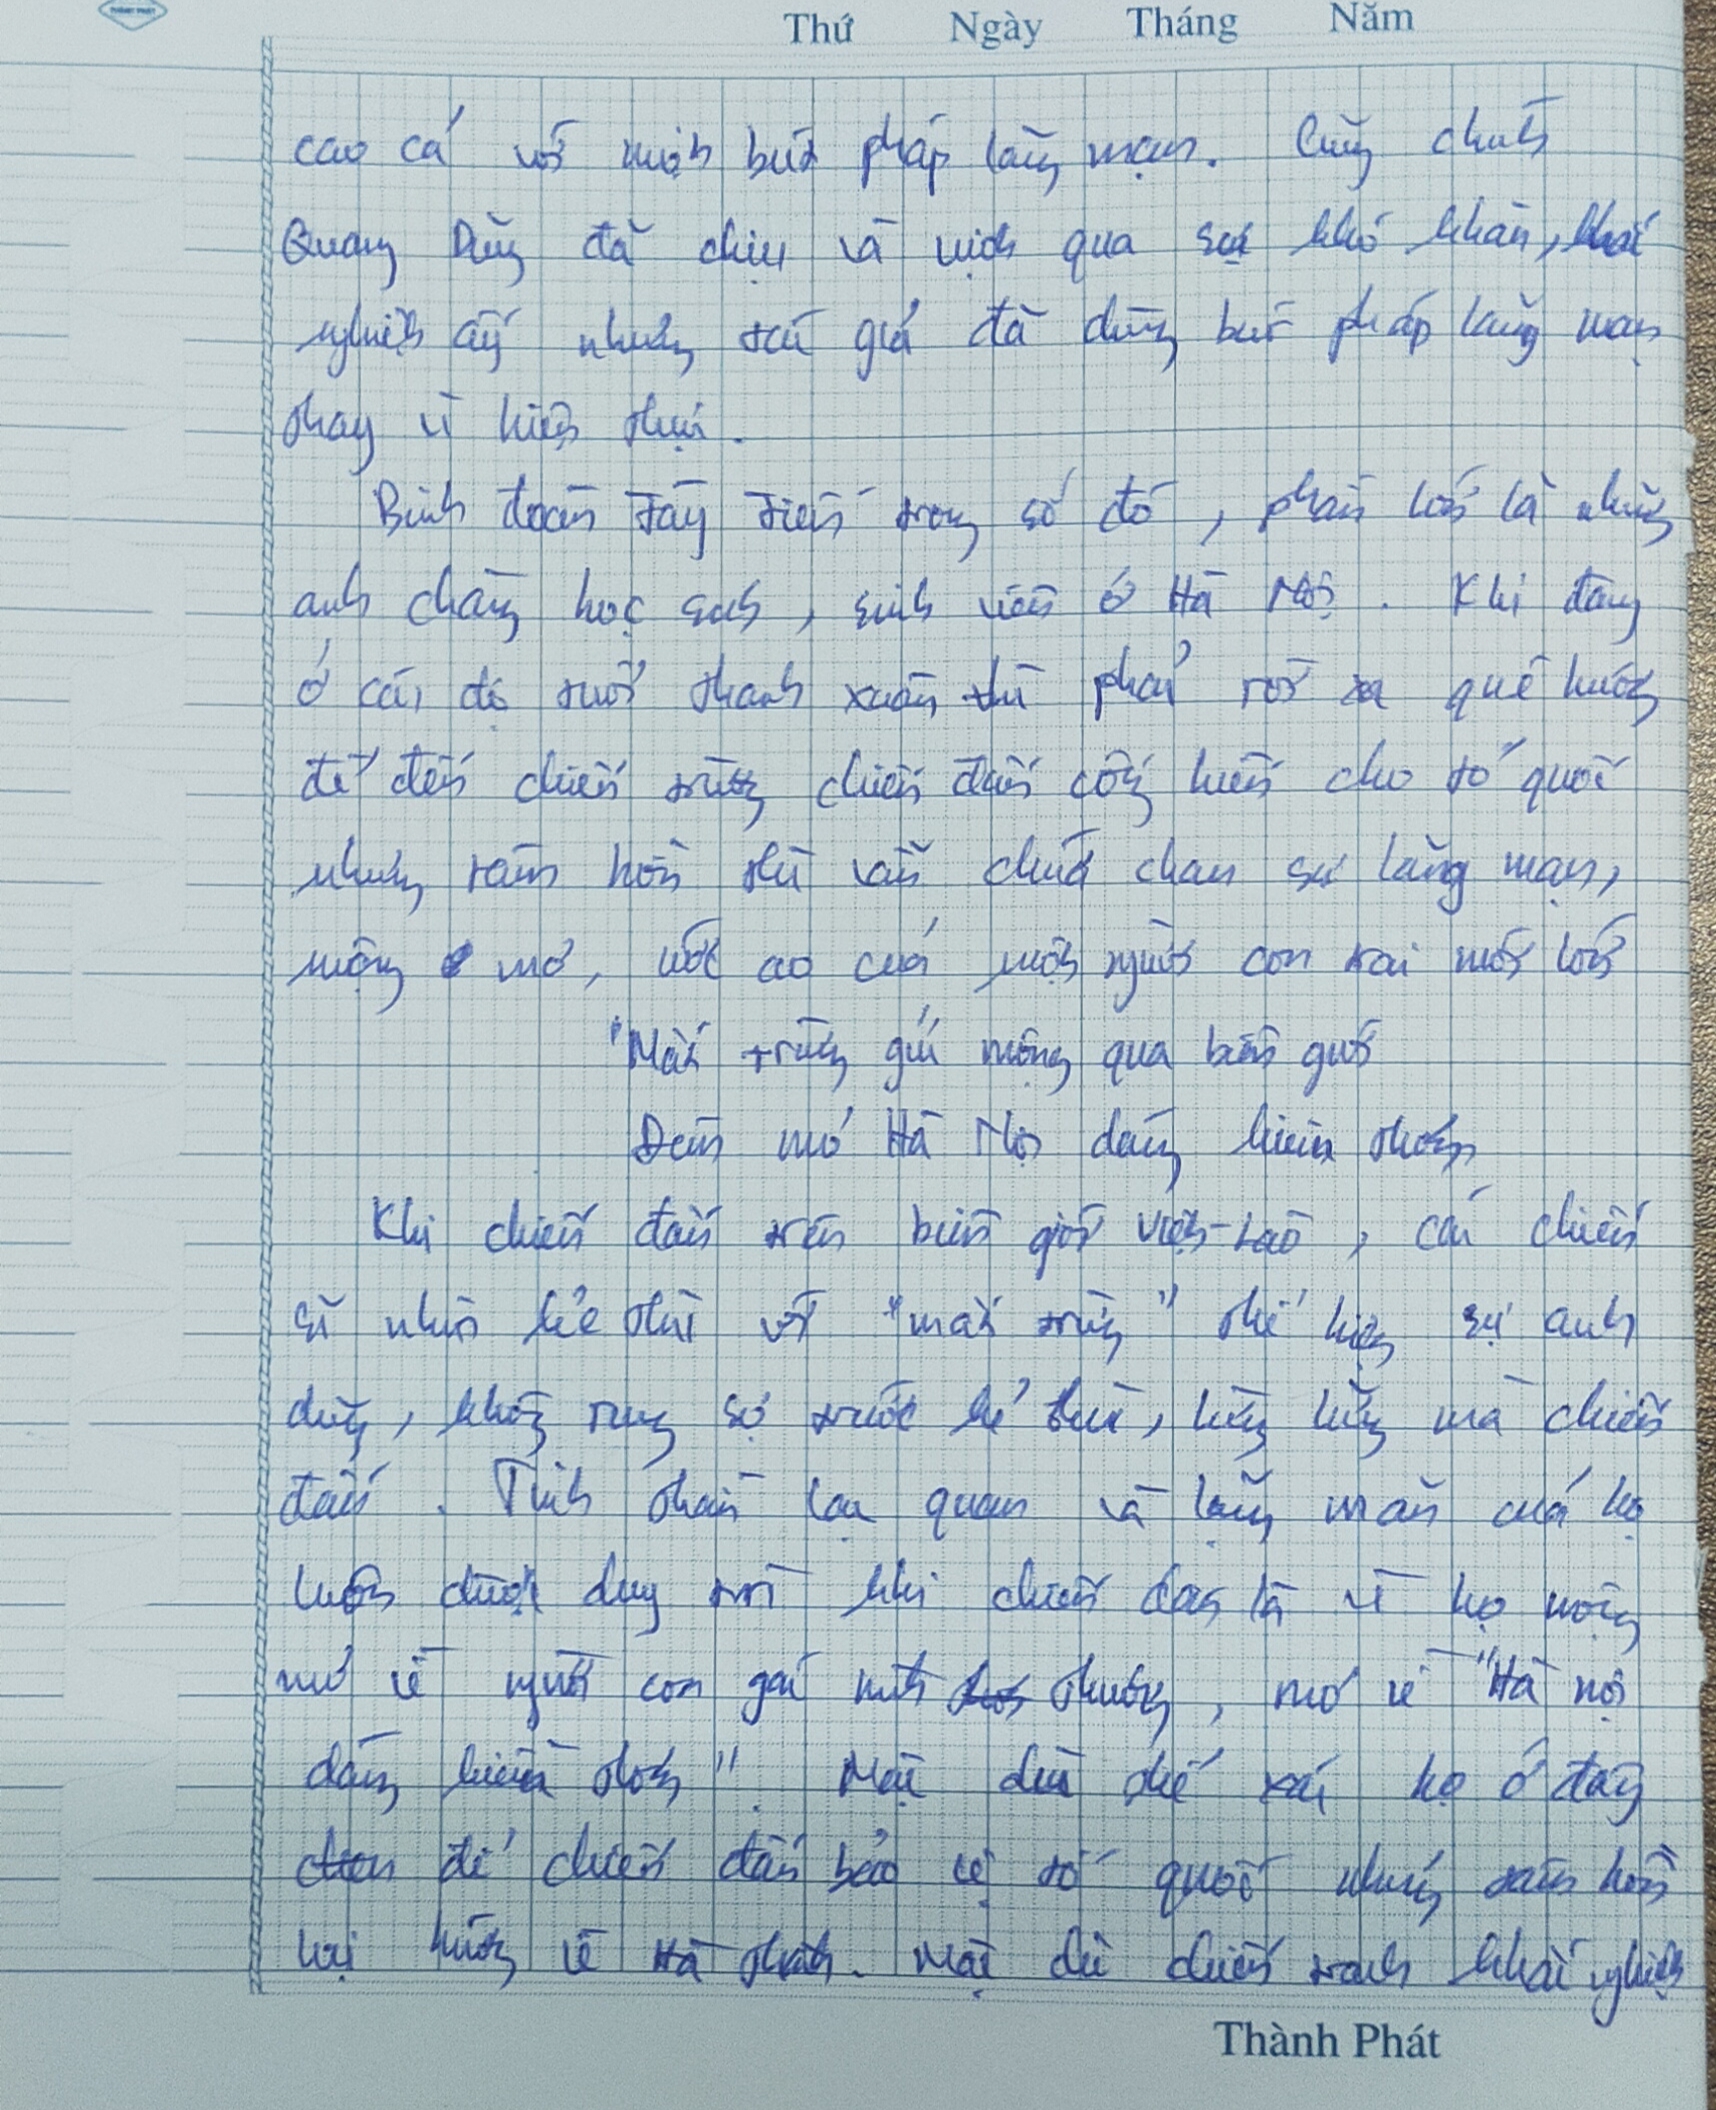 THÀNH PHÁT
Thứ Ngày Tháng Năm
cao cả với một bút pháp lãng mạn. Cũng chính
Quang Dũng đã chịu và vượt qua sự khó khăn, khắc
nghiệt ấy nhưng tác giả đã dùng bút pháp lãng mạn
thay vì hiện thực.
Binh đoàn Tây Tiến trong số đó, phần lớn là những
anh chàng học sinh, sinh viên ở Hà Nội. Khi đang
ở cái độ tuổi thanh xuân thì phải rời xa quê hương
để đến chiến trường chiến đấu cống hiến cho tổ quốc
nhưng tâm hồn thì vẫn chứa chan sự lãng mạn,
mộng mơ, ước ao của một người con trai mới lớn
"Mắt trừng gửi mộng qua biên giới
Đêm mơ Hà Nội dáng kiều thơm
Khi chiến đấu trên biên giới Việt-Lào, các chiến
sĩ nhìn kẻ thù với "mắt trừng" thể hiện sự anh
dũng, không rung sợ trước kẻ thù, hừng hừng mà chiến
đấu. Tinh thần lạc quan và lãng mạn của họ
luôn được duy trì khi chiến đấu là vì họ mộng
mơ về người con gái mình thương, mơ về "Hà nội
dáng kiều thơm". Mặc dù thể xác họ ở đây
để chiến đấu bảo vệ tổ quốc nhưng tâm hồn
lại hướng về Hà thành. Mặc dù chiến tranh khắc nghiệt
Thành Phát